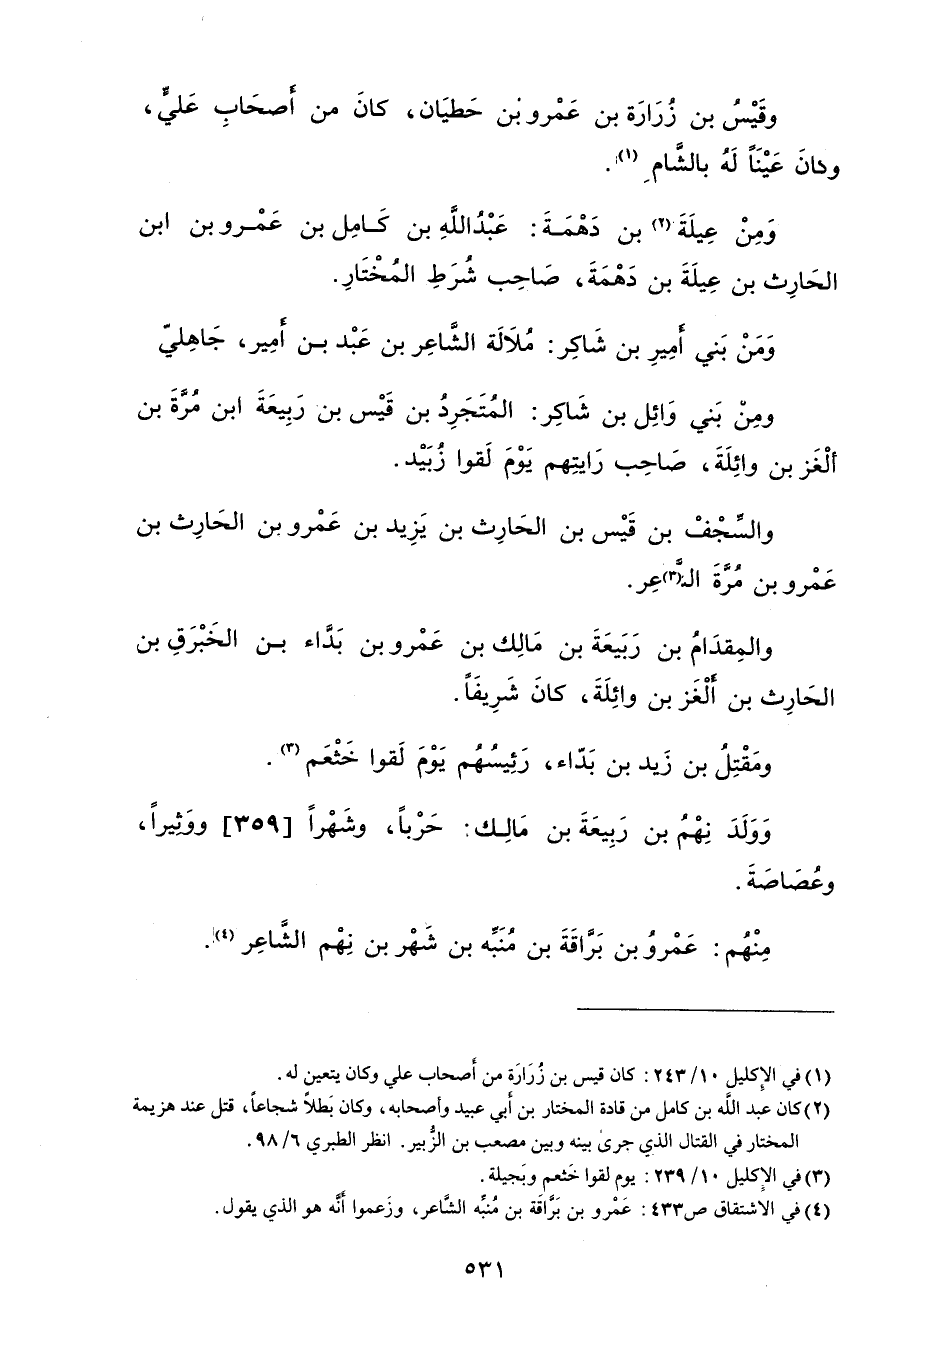 وقَيْسُ بن زُرَارَة بن عَمْرو بْن حَطيَان، كانَ من أَصحَابِ عَليٍّ،
وكانَ عَيْنَاً لَهُ بالشَّام (١).
وَمِنْ عِيلَةَ (٢) بن دَهْمَـةَ: عَبْدُاللَّهِ بن كَـامِل بن عَمْـرو بن ابن
الحَارِث بن عِيلَةَ بن دَهْمَةَ، صَاحِب شُرَطِ المُخْتَارِ.
وَمَنْ بَني أَمِيرِ بن شَاكِر: مُلَالَة الشَّاعِر بن عَبْد بـن أَمِير، جَاهِليّ
ومِنْ بَني وَائِل بن شَاكِر: المُتَجَرِدُ بن قَيْس بن رَبِيعَةَ ابن مُرَّةَ بن
ألْغَز بن وائِلَةَ، صَاحِب رَايتِهم يَوْمَ لَقوا زُبَيْد.
والسِّجْفْ بن قَيْس بن الحَارِث بن يَزِيد بن عَمْرو بن الحَارِث بن
عَمْرو بن مُرَّةَ الشَّ(٣)عِر.
والمِقدَامُ بن رَبَيعَةَ بن مَالِك بن عَمْرو بن بَدَّاء بـن الخَبْرَقِ بن
الحَارِث بن أَلْغَز بن وائِلَةَ، كانَ شَرِيفَاً.
ومَقْتِلُ بن زَيد بن بَدّاء، رَئِيسُهُم يَوْمَ لَقوا خَثْعَم (٣).
وَوَلَدَ نِهْمُ بن رَبِيعَةَ بن مَالِـك: حَرْباً، وشَهْراً [٣٥٩] ووَثِيراً،
وعُصَاصَةَ.
مِنْهُم: عَمْرُو بن بَرَّاقَةَ بن مُنَبِّه بن شَهْر بن نِهْم الشَّاعِر (٤).
(١) في الإكليل ١٠/ ٢٤٣: كان قيس بن زُرَارَة من أصحاب علي وكان يتعين له.
(٢) كان عبد اللَّه بن كامل من قادة المختار بن أبي عبيد وأصحابه، وكان بَطلاً شجاعاً، قتل عند هزيمة
المختار في القتال الذي جرىٰ بينه وبين مصعب بن الزُّبير. انظر الطبري ٦/ ٩٨.
(٣) في الإكليل ١٠/ ٢٣٩: يوم لقوا خَثعم وبَجيلة.
(٤) في الاشتقاق ص٤٣٣: عَمْرو بن بَرَّاقة بن مُنبِّه الشَّاعر، وزعموا أنَّه هو الذي يقول.
٥٣١